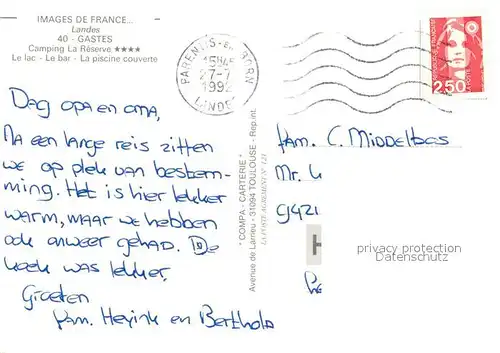 IMAGES DE FRANCE...
Landes
40 - GASTES
Camping La Réserve ★★★★
Le lac - Le bar - La piscine couverte
PARENTIS-EN-BORN
15H45
27-7
1992
LANDES
2,50
Dag opa en oma,
Na een lange reis zitten
we op plek van bestem-
ming. Het is hier lekker
warm, maar we hebben
ook onweer gehad. De
koek was lekker.
Groeten
fam. Heyink en Berthold
"COMPA - CARTERIE"
Avenue de Larrieu - 31094 TOULOUSE - Rep.int.
LA POSTE AGREMENT N° 121
fam. C. Middelbos
Mr.
9421
privacy protection
Datenschutz